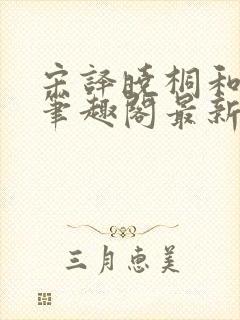 宋译晓桐和
笔趣阁最新
三月惠美